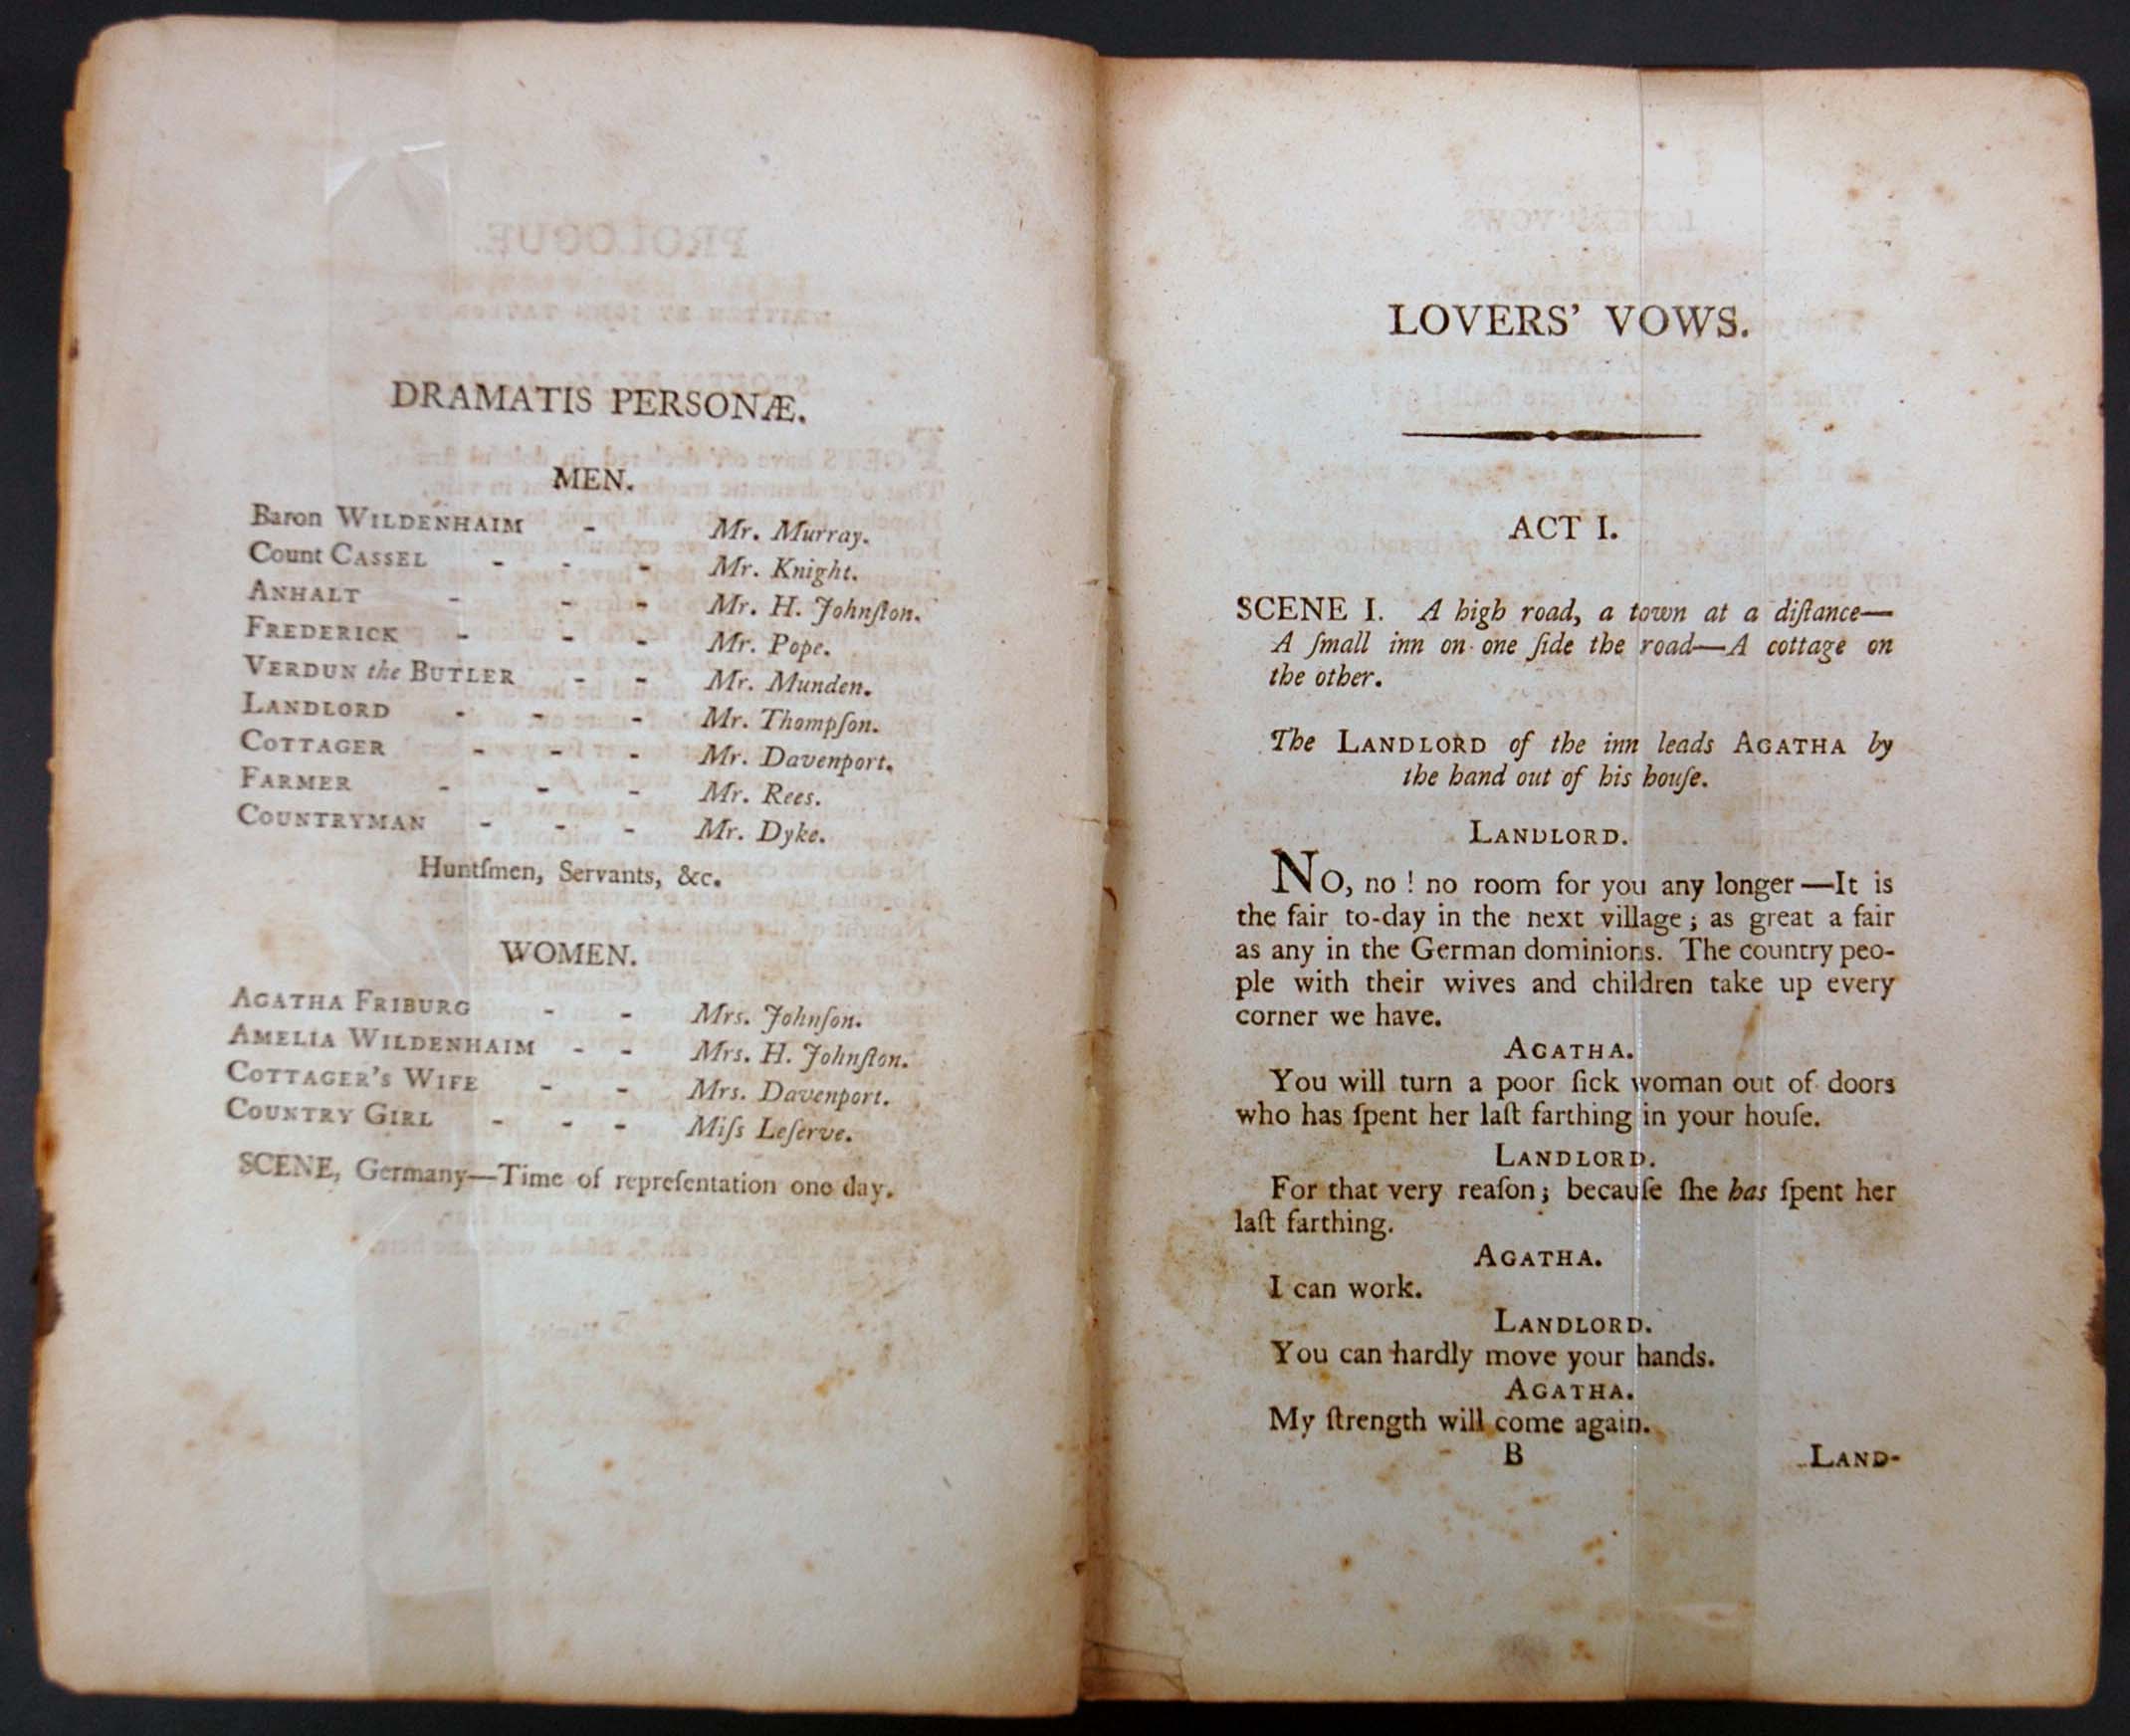 DRAMATIS PERSONÆ.
MEN.
Baron WILDENHAIM - Mr. Murray.
Count CASSEL - - - Mr. Knight.
ANHALT - - - Mr. H. Johnſton.
FREDERICK - - - Mr. Pope.
VERDUN the BUTLER - - Mr. Munden.
LANDLORD - - - Mr. Thompſon.
COTTAGER - - - Mr. Davenport.
FARMER - - - Mr. Rees.
COUNTRYMAN - - - Mr. Dyke.
Huntſmen, Servants, &c.
WOMEN.
AGATHA FRIBURG - - Mrs. Johnſon.
AMELIA WILDENHAIM - - Mrs. H. Johnſton.
COTTAGER'S WIFE - - Mrs. Davenport.
COUNTRY GIRL - - - Miſs Leſerve.
SCENE, Germany—Time of repreſentation one day.
LOVERS' VOWS.
ACT I.
SCENE I. A high road, a town at a diſtance—
A ſmall inn on one ſide the road—A cottage on
the other.
The LANDLORD of the inn leads AGATHA by
the hand out of his houſe.
LANDLORD.
NO, no ! no room for you any longer—It is
the fair to-day in the next village ; as great a fair
as any in the German dominions. The country peo-
ple with their wives and children take up every
corner we have.
AGATHA.
You will turn a poor ſick woman out of doors
who has ſpent her laſt farthing in your houſe.
LANDLORD.
For that very reaſon ; becauſe ſhe has ſpent her
laſt farthing.
AGATHA.
I can work.
LANDLORD.
You can hardly move your hands.
AGATHA.
My ſtrength will come again.
B LAND-